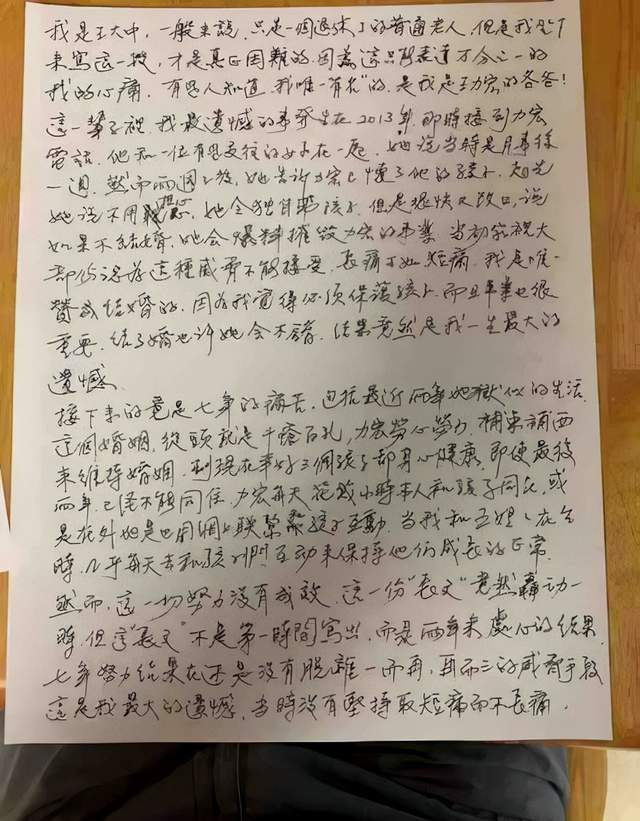 我是王大中，一般来說，只是一個退休了的普通老人，但是我坐下
来寫這一段，才是真正困難的．因為這只能表達万分之一的
我的心痛．有恩人知道，我唯一有名"的，是我是王力宏的爸爸！
這一輩子裡，我最遺憾的事發生在2013年，那時接到力宏
電話，他和一位有恩交往的女子在一起，她說當時是月事後
一週．然而兩週之後，她告訴力宏已懷了他的孩子．起先
她說不用担心，她会独自帶孩子．但是很快又改口，說
如果不結婚，她会爆料摧毀力宏的事業．當初家裡大
部份認為這種威脅不能接受，長痛不如短痛．我是唯一
贊成結婚的．因為我覺得必須保護孩子．而且事業也很
重要．結了婚也许她会不錯．结果竟然是我一生最大的
遺憾．
接下来的竟是七年的痛苦．包括最近兩年地獄似的生活．
這個婚姻，從頭就是千瘡百孔，力宏勞心勞力，補東補西
来維持婚姻．到現在幸好三個孩子都身心健康．即使最後
兩年，已经不能同住，力宏每天花幾小時本人和孩子同在，或
是在外地是也用網上联繫和孩子互動．當我和王媽〻在台
時，几乎每天去和孩子們互动来保持他们成長的正常．
然而，這一切努力没有成效．這一份"長文"竟然轟动一
時．但這"長文"不是第一時間寫出，而是兩年来處心的结果．
七年努力结果在还是没有脫離一而再，再而三的威脅手段
這是我最大的遺憾，当時没有堅持取短痛而不長痛．